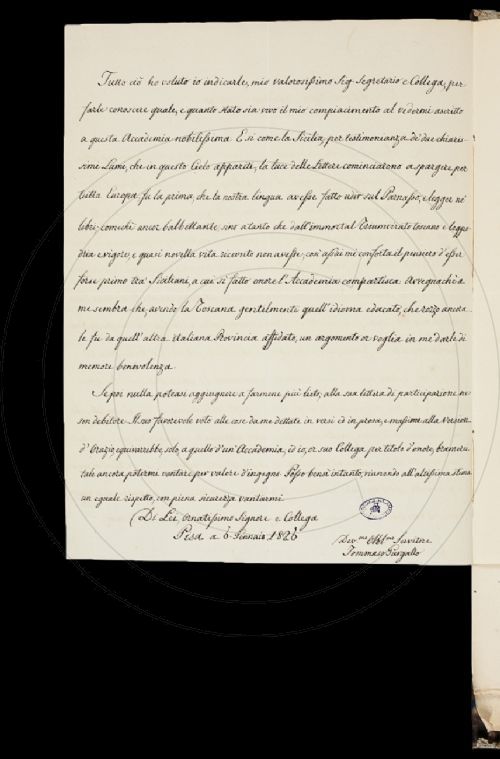 Tutto ciò ho voluto io indicarle, mio valorosissimo Sig. Segretario e Collega, per
farle conoscere quale, e quanto stato sia vivo il mio compiacimento al vedermi ascritto
a questa Accademia nobilissima. E sì come la Sicilia, per testimonianza di due chiaris-
simi Lumi, che in questo Cielo apparite, la luce delle Lettere cominciarono a spargere per
tutta Europa, fu la prima, che la nostra lingua avesse fatto udir sul Parnasso, e legger ne'
libri, comechè ancor balbettante, sino a tanto che dall'immortal Triumvirato toscano e leggia-
dria e vigore, e quasi novella vita recevuto non avesse; così assai mi conforta il pensiero d'esser
forse primo tra' Siciliani, a cui sì fatto onore l'Accademia compartisca. Avvegnachè a
me sembra che, avendo la Toscana gentilmente quell'idioma educato, che rozzo ancora
le fu da quell'altra italiana Provincia affidato, un argomento or voglia in me darle di
memore benevolenza.
Se poi nulla poteasi aggiugnere a farmene più lieto, alla sua lettera di participazione ne
son debitore. Il suo favorevole voto alle cose da me dettate in versi ed in prosa, e massime alla Versione
d'Orazio, equivarrebbe, solo, a quello d'un'Accademia, ed io, or suo Collega per titolo d'onore, bramerei
ancora potermi vantare per valore d'ingegno. Posso bensì intanto, riunendo all'altissima stima
un eguale rispetto, con piena sicurezza vantarmi
Di Lei, ornatissimo Signore e Collega
Pisa a 6 Gennaio 1826
Dev.mo Obbl.mo Servitore
Tommaso Gargallo